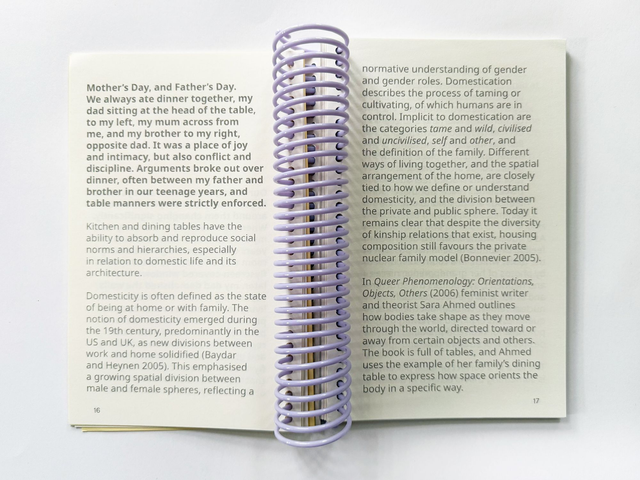 Mother's Day, and Father's Day.
We always ate dinner together, my
dad sitting at the head of the table,
to my left, my mum across from
me, and my brother to my right,
opposite dad. It was a place of joy
and intimacy, but also conflict and
discipline. Arguments broke out over
dinner, often between my father and
brother in our teenage years, and
table manners were strictly enforced.
Kitchen and dining tables have the
ability to absorb and reproduce social
norms and hierarchies, especially
in relation to domestic life and its
architecture.
Domesticity is often defined as the state
of being at home or with family. The
notion of domesticity emerged during
the 19th century, predominantly in the
US and UK, as new divisions between
work and home solidified (Baydar
and Heynen 2005). This emphasised
a growing spatial division between
male and female spheres, reflecting a
16
normative understanding of gender
and gender roles. Domestication
describes the process of taming or
cultivating, of which humans are in
control. Implicit to domestication are
the categories tame and wild, civilised
and uncivilised, self and other, and
the definition of the family. Different
ways of living together, and the spatial
arrangement of the home, are closely
tied to how we define or understand
domesticity, and the division between
the private and public sphere. Today it
remains clear that despite the diversity
of kinship relations that exist, housing
composition still favours the private
nuclear family model (Bonnevier 2005).
In Queer Phenomenology: Orientations,
Objects, Others (2006) feminist writer
and theorist Sara Ahmed outlines
how bodies take shape as they move
through the world, directed toward or
away from certain objects and others.
The book is full of tables, and Ahmed
uses the example of her family's dining
table to express how space orients the
body in a specific way.
17